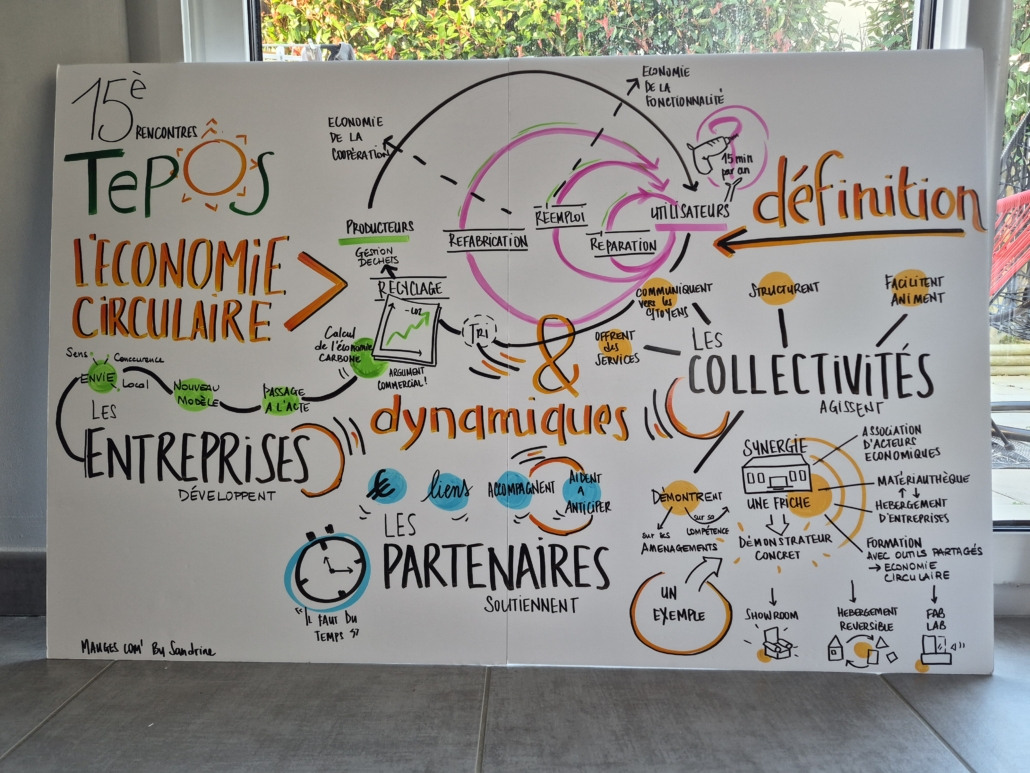 15è
RENCONTRES
TePOS
L'ECONOMIE
CIRCULAIRE
ECONOMIE
DE LA
COOPÉRATION
ECONOMIE
DE LA
FONCTIONNALITÉ
15 min
par an
définition
PRODUCTEURS
GESTION
DECHETS
RECYCLAGE
REFABRICATION
REEMPLOI
REPARATION
UTILISATEURS
TRI
&
dynamiques
Sens
Concurrence
ENVIE
Local
NOUVEAU
MODÈLE
PASSAGE
A L'ACTE
Calcul
de l'économie
CARBONE
- CO2
ARGUMENT
COMMERCIAL!
LES
ENTREPRISES
DÉVELOPPENT
COMMUNIQUENT
vers les
CITOYENS
STRUCTURENT
FACILITENT
ANIMENT
OFFRENT
des
SERVICES
LES
COLLECTIVITÉS
AGISSENT
€
liens
ACCOMPAGNENT
AIDENT
A
ANTICIPER
LES
PARTENAIRES
SOUTIENNENT
"IL FAUT DU
TEMPS"
DEMONTRENT
sur sa
COMPÉTENCE
sur les
AMENAGEMENTS
UN
EXEMPLE
SYNERGIE
UNE FRICHE
DÉMONSTRATEUR
CONCRET
ASSOCIATION
D'ACTEURS
ECONOMIQUES
MATÉRIAUTHÈQUE
HEBERGEMENT
D'ENTREPRISES
FORMATION
AVEC OUTILS PARTAGÉS
→ ECONOMIE
CIRCULAIRE
SHOWROOM
HEBERGEMENT
REVERSIBLE
FAB
LAB
MAUGES COM' By Sandrine